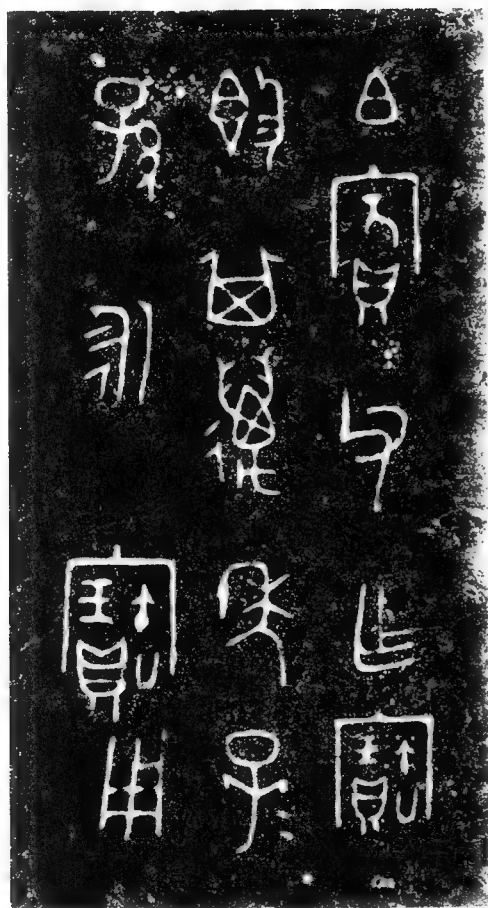 白賓父乍寶
𣪘其邁年子=
孫永寶用